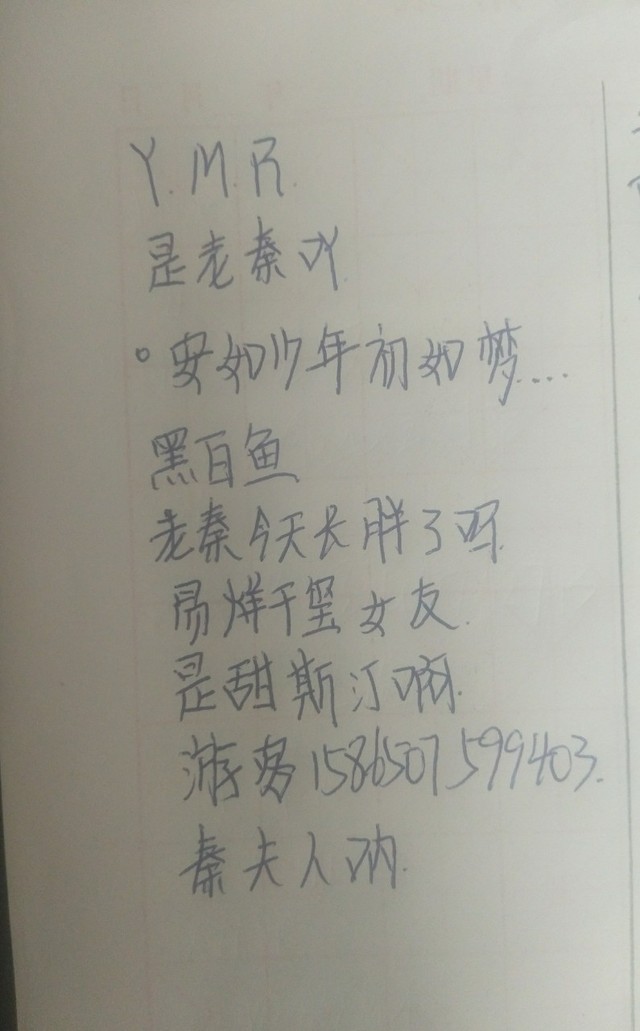 Y.M.R.
是老秦吖
。安如少年初如梦....
黑白鱼
老秦今天长胖了吗.
易烊千玺女友.
是甜斯汀啊.
游客1586507599403.
秦夫人呐.